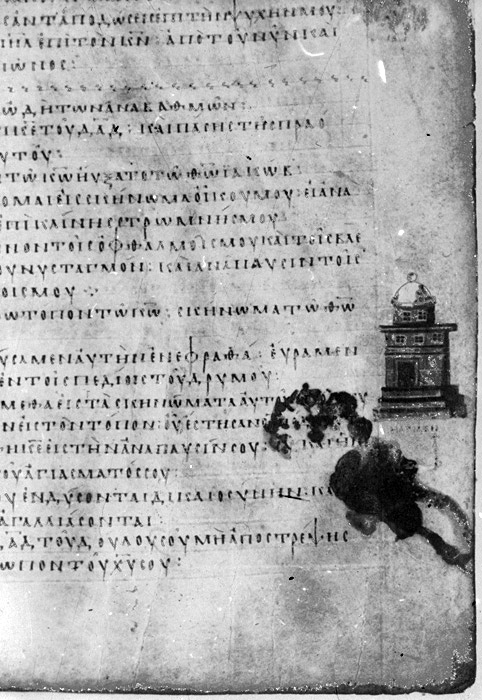 ΣΑΝΤΑΠΟΔΩΣΕΙΣΕΠΙΤΗΝΨΥΧΗΝΜΟΥ:
ΗΛΕΠΙΤΟΝΚΝ: ΑΠΟΤΟΥΝΥΝΚΑΙ
ΙΩΝΟΣ:
ΩΔΗΤΩΝΑΝΑΒΑΘΜΩΝ:
ΤΗΣΕΤΟΥΔΑΔ: ΚΑΙΠΑΣΗΣΤΗΣΠΡΑΟ
ΥΤΟΥ:
ΤΩΚΩΗΥΞΑΤΟΤΩΘΩΙΑΚΩΒ:
ΟΜΑΙΕΙΣΣΚΗΝΩΜΑΟΙΚΟΥΜΟΥ: ΕΙΑΝΑ
ΕΠΙΚΛΙΝΗΣΣΤΡΩΜΝΗΣΜΟΥ:
ΠΝΟΝΤΟΙΣΟΦΘΑΛΜΟΙΣΜΟΥΚΑΙΤΟΙΣΒΛΕ
ΟΥΝΥΣΤΑΓΜΟΝ: ΚΑΙΑΝΑΠΑΥΣΙΝΤΟΙΣ
ΟΙΣΜΟΥ:
ΩΤΟΠΟΝΤΩΚΩ: ΣΚΗΝΩΜΑΤΩΘΩ
ΥΣΑΜΕΝΑΥΤΗΝΕΝΕΦΡΑΘΑ: ΕΥΡΑΜΕΝ
ΕΝΤΟΙΣΠΕΔΙΟΙΣΤΟΥΔΡΥΜΟΥ:
ΜΕΘΑΕΙΣΤΑΣΚΗΝΩΜΑΤΑΑΥΤΟΥ
ΝΕΙΣΤΟΝΤΟΠΟΝ: ΟΥΕΣΤΗΣΑΝ
ΗΘΙΚΕΕΙΣΤΗΝΑΝΑΠΑΥΣΙΝΣΟΥ:
ΟΥΑΓΙΑΣΜΑΤΟΣΣΟΥ:
ΟΥΕΝΔΥΣΟΝΤΑΙΔΙΚΑΙΟΣΥΝΗΝ: ΚΑ
ΑΓΑΛΛΙΑΣΟΝΤΑΙ:
ΔΑΔΤΟΥΔΟΥΛΟΥΣΟΥΜΗΑΠΟΣΤΡΕΨΗΣ
ΩΠΟΝΤΟΥΧΥΣΟΥ: